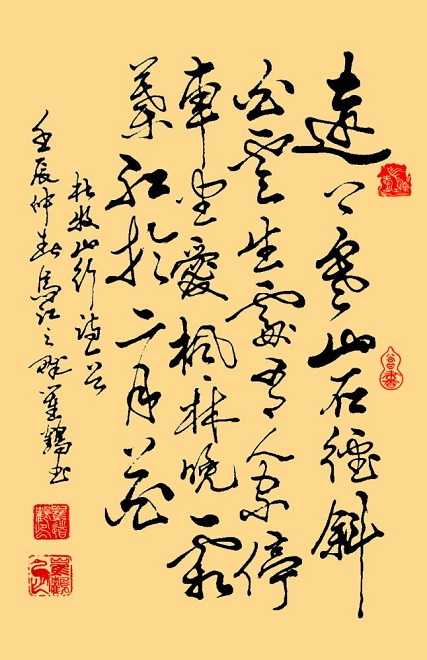 遠上寒山石徑斜
白雲生處有人家停
車坐愛楓林晚霜
葉紅於二月花
杜牧山行詩一首
壬辰仲春江之畔鶴書